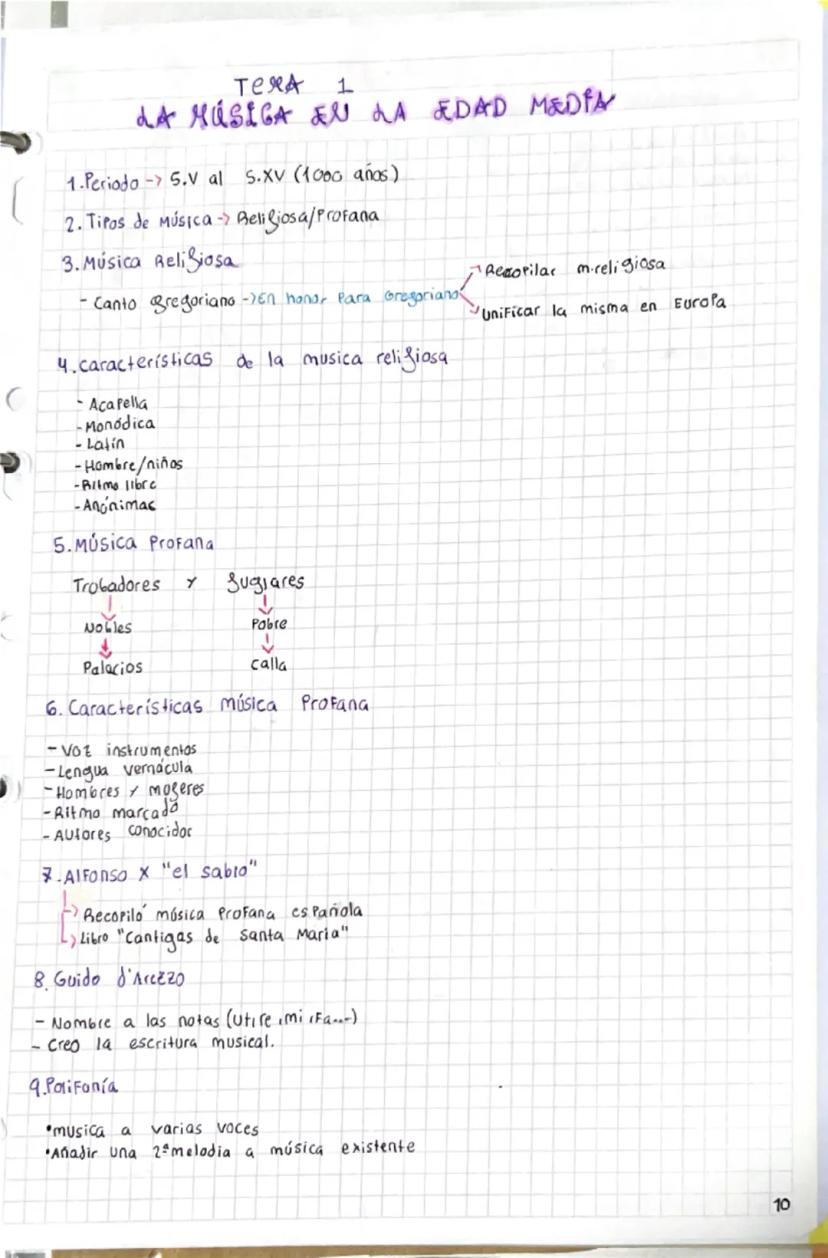 TEMA 1
LA MÚSICA EN LA EDAD MEDIA
1.Periodo -> S.V al S.XV (1000 años)
2. Tipos de Música -> Religiosa/Profana
3. Música Religiosa
- Canto gregoriano -> En honor Para Gregoriano
Recopilar m.religiosa
Unificar la misma en Europa
4. características de la musica religiosa
- Acapella
- Monódica
- Latín
- Hombre/niños
- Ritmo libre
- Anónimas
5. Música Profana
Trobadores y Juglares
Nobles Pobre
Palacios calla
6. Características música Profana
- Voz instrumentos
- Lengua vernácula
- Hombres y mogeres
- Ritmo marcado
- Autores conocidor
7. Alfonso X "el sabio"
Recopiló música Profana española
Libro "Cantigas de Santa Maria"
8. Guido d'Arezzo
- Nombre a las notas (Ut, re, mi, Fa...)
- Creo la escritura musical.
9. Polifonía
•musica a varias voces
•Añadir una 2ª melodia a música existente
10